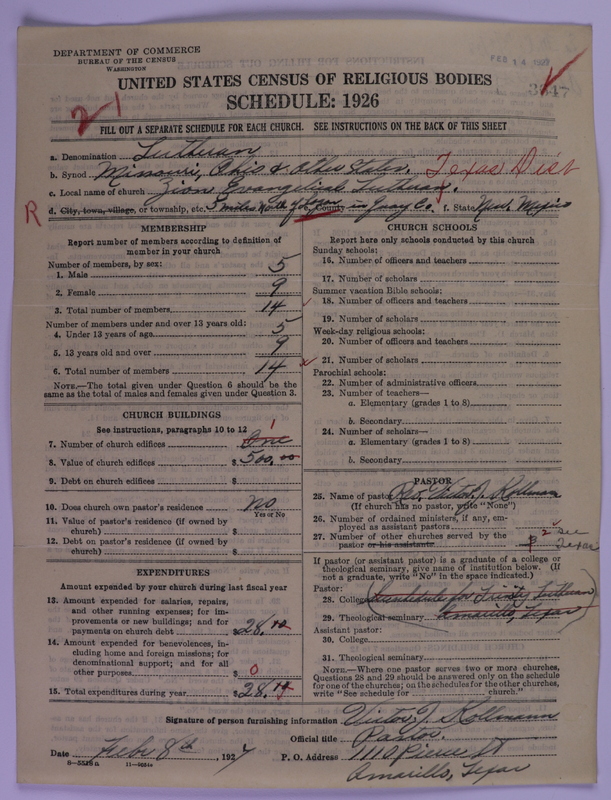 DEPARTMENT OF COMMERCE
BUREAU OF THE CENSUS
WASHINGTON
FEB 14 1927
3847
UNITED STATES CENSUS OF RELIGIOUS BODIES
SCHEDULE: 1926
2-1
FILL OUT A SEPARATE SCHEDULE FOR EACH CHURCH. SEE INSTRUCTIONS ON THE BACK OF THIS SHEET
a. Denomination Lutheran
b. Synod Missouri, Ohio & Other States. Texas Dist
c. Local name of church Zion Evangelical Lutheran.
R
d. City, town, village, or township, etc. miles North County in Co. f. State New Mexico
MEMBERSHIP
Report number of members according to definition of
member in your church
Number of members, by sex:
1. Male 5
2. Female 9
3. Total number of members 14
Number of members under and over 13 years old:
4. Under 13 years of age 5
5. 13 years old and over 9
6. Total number of members 14
NOTE.—The total given under Question 6 should be
the same as the total of males and females given under Question 3.
CHURCH BUILDINGS
See instructions, paragraphs 10 to 12
7. Number of church edifices One 1
8. Value of church edifices $ 500.00
9. Debt on church edifices $
10. Does church own pastor's residence No
Yes or No
11. Value of pastor's residence (if owned by
church) $
12. Debt on pastor's residence (if owned by
church) $
EXPENDITURES
Amount expended by your church during last fiscal year
13. Amount expended for salaries, repairs,
and other running expenses; for im-
provements or new buildings; and for
payments on church debt $28.
14. Amount expended for benevolences, in-
cluding home and foreign missions; for
denominational support; and for all
other purposes $ 0
15. Total expenditures during year $28.
CHURCH SCHOOLS
Report here only schools conducted by this church
Sunday schools:
16. Number of officers and teachers
17. Number of scholars
Summer vacation Bible schools:
18. Number of officers and teachers
19. Number of scholars
Week-day religious schools:
20. Number of officers and teachers
21. Number of scholars
Parochial schools:
22. Number of administrative officers
23. Number of teachers—
a. Elementary (grades 1 to 8)
b. Secondary
24. Number of scholars—
a. Elementary (grades 1 to 8)
b. Secondary
PASTOR
25. Name of pastor Rev. Victor J. Kollmann
(If church has no pastor, write "None")
26. Number of ordained ministers, if any, em-
ployed as assistant pastors
27. Number of other churches served by the
pastor or his assistant 2 see Texas
If pastor (or assistant pastor) is a graduate of a college or
theological seminary, give name of institution below. (If
not a graduate, write "No" in the space indicated.)
Pastor:
28. College See schedule for Trinity Lutheran
29. Theological seminary Amarillo, Texas
Assistant pastor:
30. College
31. Theological seminary
NOTE.—Where one pastor serves two or more churches,
Questions 28 and 29 should be answered only on the schedule
for one of the churches; on the schedules for the other churches,
write "See schedule for church."
Signature of person furnishing information Victor J. Kollmann
Official title Pastor.
Date Febr 8th, 1927 P. O. Address 1110 Pierce St
Amarillo, Texas
8—5518a 11—9664a